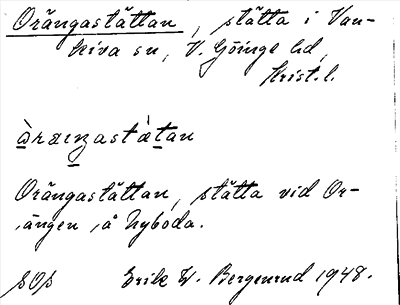 Orängastättan, stätta i Van-
keiva sn, V. Göinge hd,
Krist. l.
àræŋastàtan
Orängastättan, stätta vid Or-
ängen å Nyboda.
Erik W. Bergenrud 1948.